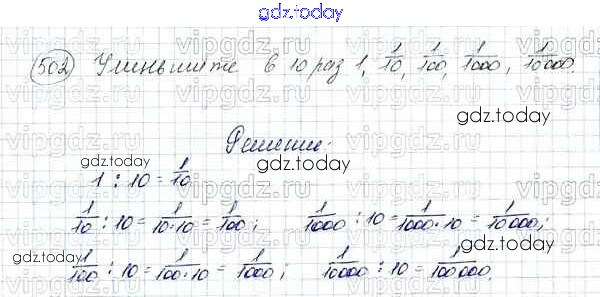 gdz.today
502 Уменьшите в 10 раз 1, 1/10, 1/100, 1/1000, 1/10000.
gdz.today
Решение:
gdz.today
gdz.today
1 : 10 = 1/10
1/10 : 10 = 1/10·10 = 1/100; 1/1000 : 10 = 1/1000·10 = 1/10000;
gdz.today
gdz.today
1/100 : 10 = 1/100·10 = 1/1000; 1/10000 : 10 = 1/100000.